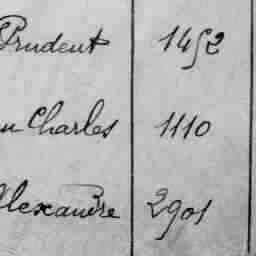 Prudent 1452
Charles 1110
Alexandre 2901